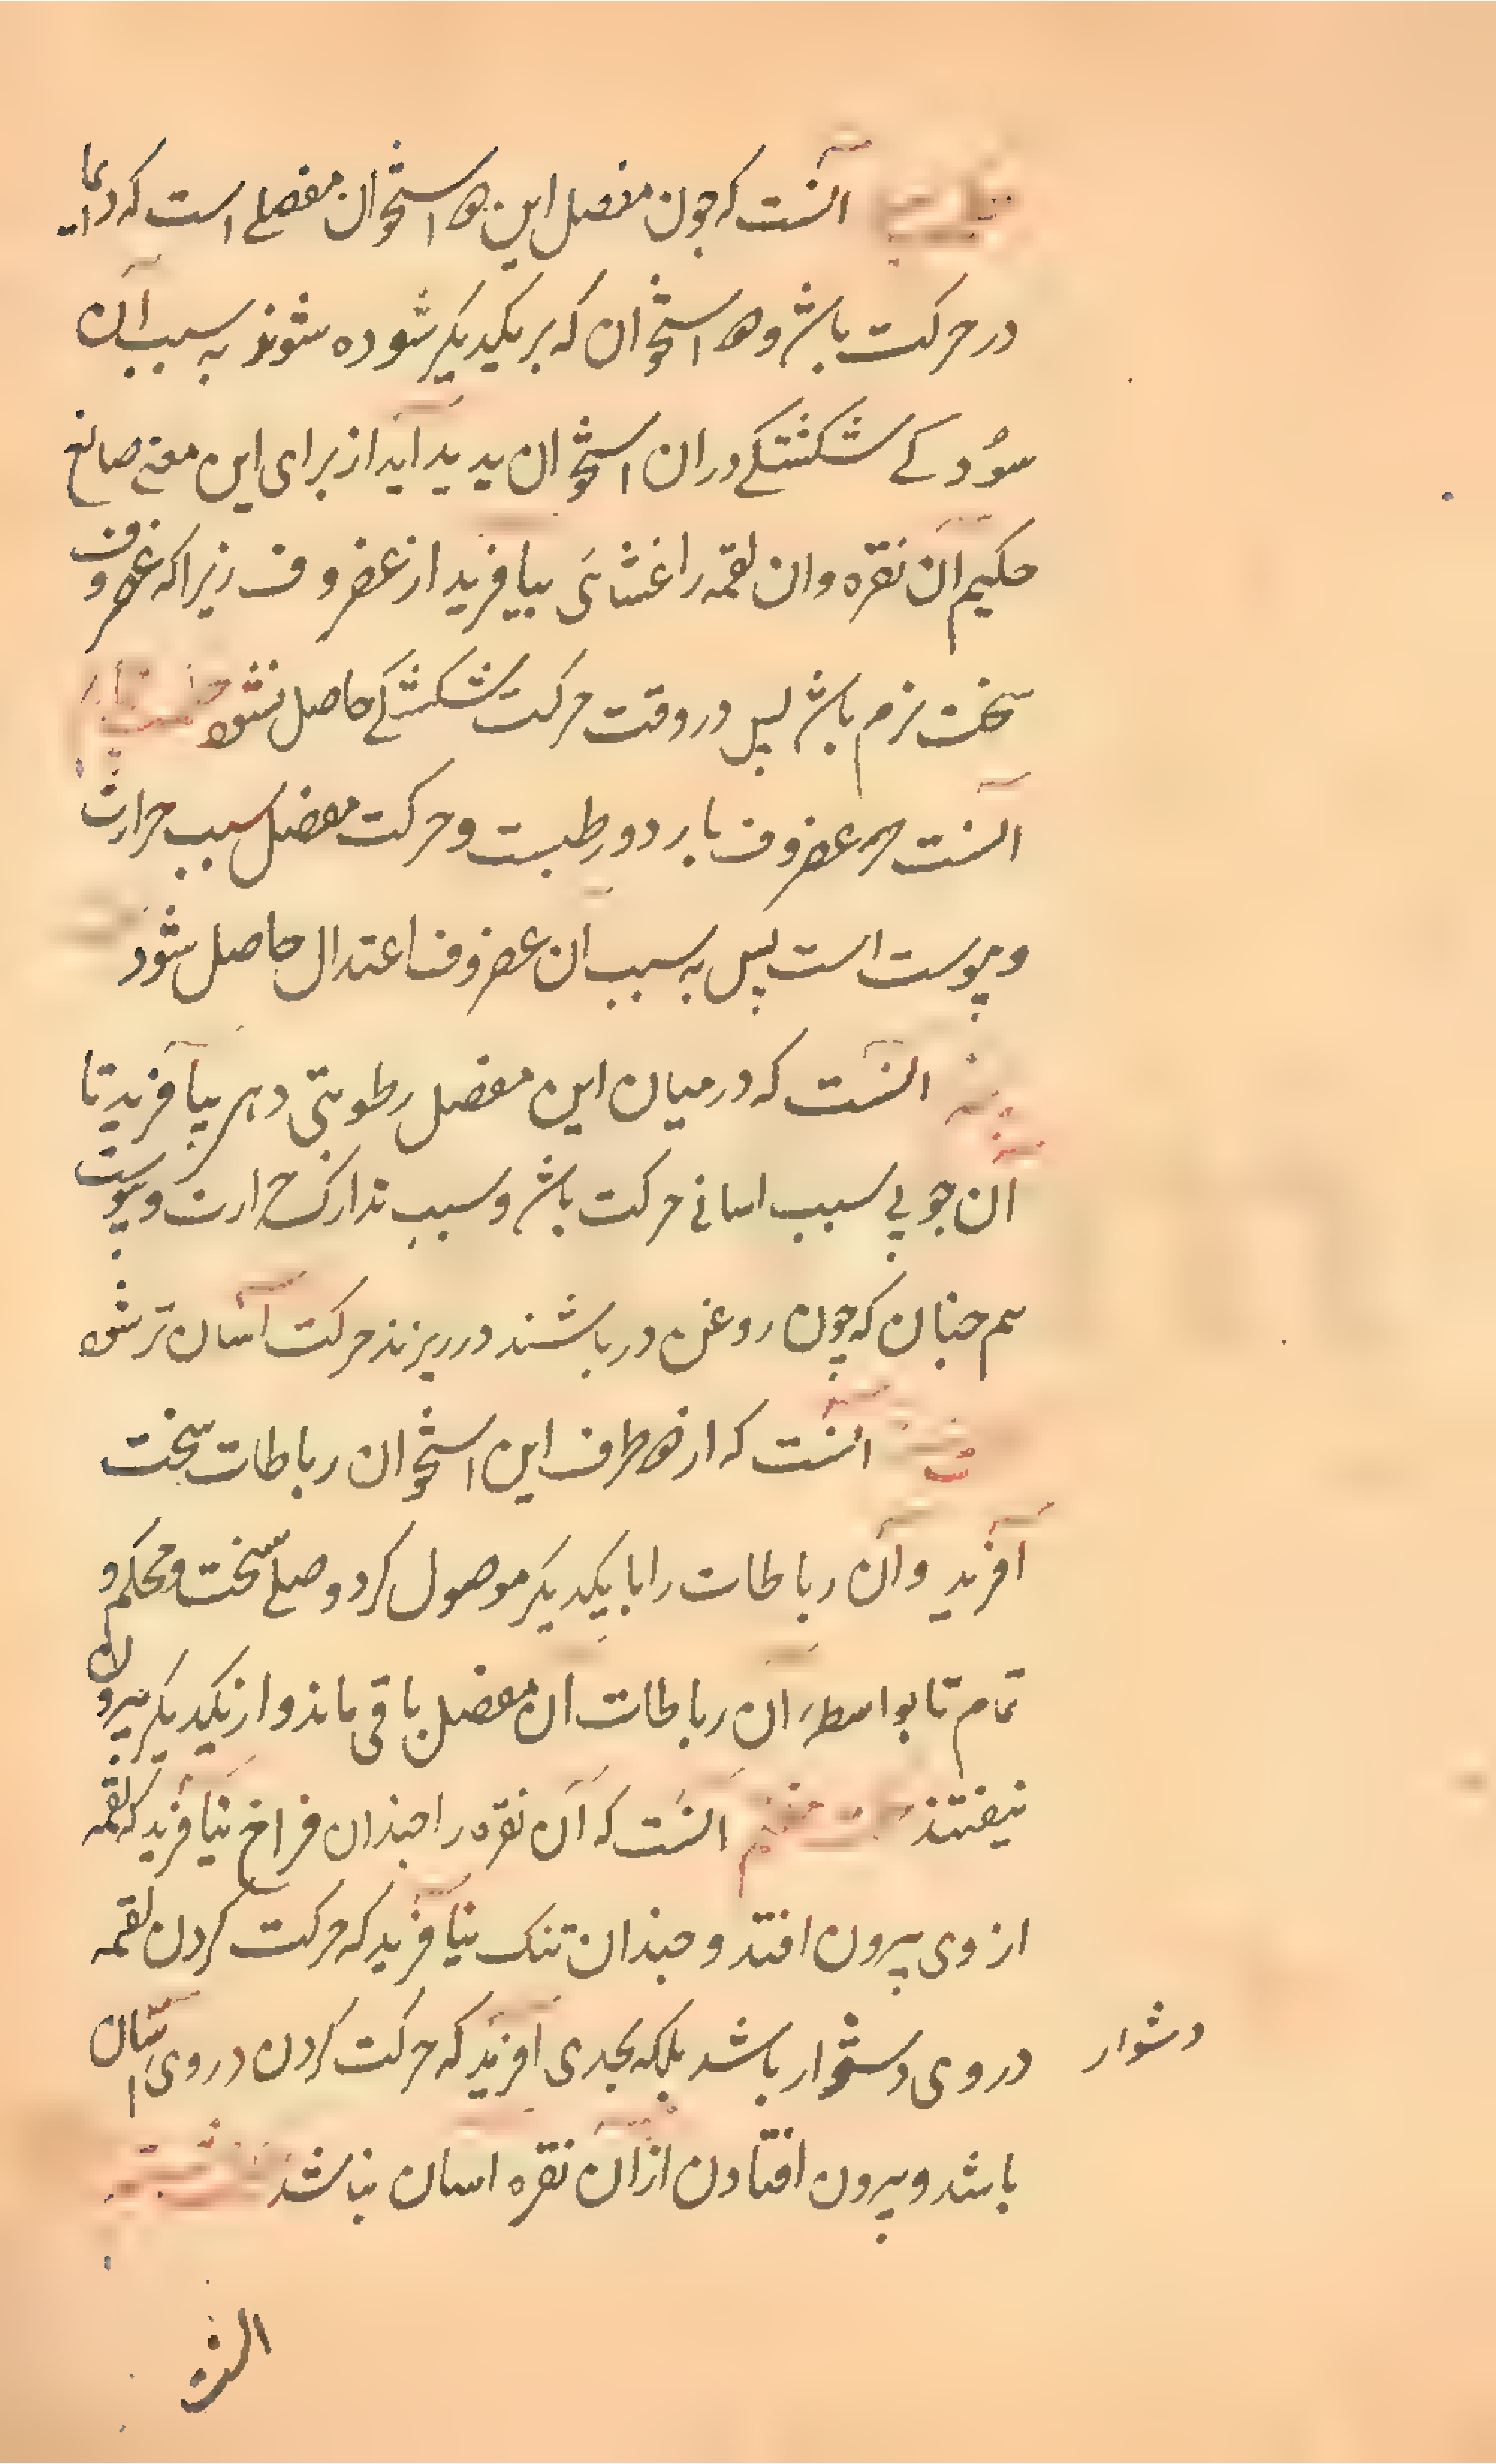 آنست که چون مفصل این هر دو استخوان مفصلی است که دایما
در حرکت باشد و هر دو استخوان که بر یکدیگر سوده شوند به سبب آن
سودگی شکستگی در آن استخوان پدید آید از برای این معنی صانع
حکیم آن نقره و آن لقمه را غشائی بیافرید از غضروف زیرا که غضروف
سخت نرم باشد پس در وقت حرکت شکستگی حاصل نشود
آنست که غضروف بارد و رطبست و حرکت مفصل سبب حرارت
و یبوست است پس به سبب آن غضروف اعتدال حاصل شود
آنست که در میان این مفصل رطوبتی دهنی بیافرید تا
آن چربی سبب آسانی حرکت باشد و سبب تدارک حرارت و یبوست
هم چنان که چون روغن در پاشنه در ریزند حرکت آسان تر شود
آنست که از هر طرف این استخوان رباطات سخت
آفرید و آن رباطات را با یکدیگر موصول کرد وصلی سخت و محکم و
تمام تا بواسطه آن رباطات آن مفصل باقی ماند و از یکدیگر بیرون
نیفتند هفتم آنست که آن نقره را چندان فراخ نیافرید که لقمه
از وی بیرون افتد و چندان تنک نیافرید که حرکت کردن لقمه
در وی دشوار باشد بلکه بحدی آفرید که حرکت کردن در وی آسان
دشوار
باشد و بیرون افتادن از آن نقره آسان نباشد
آنست